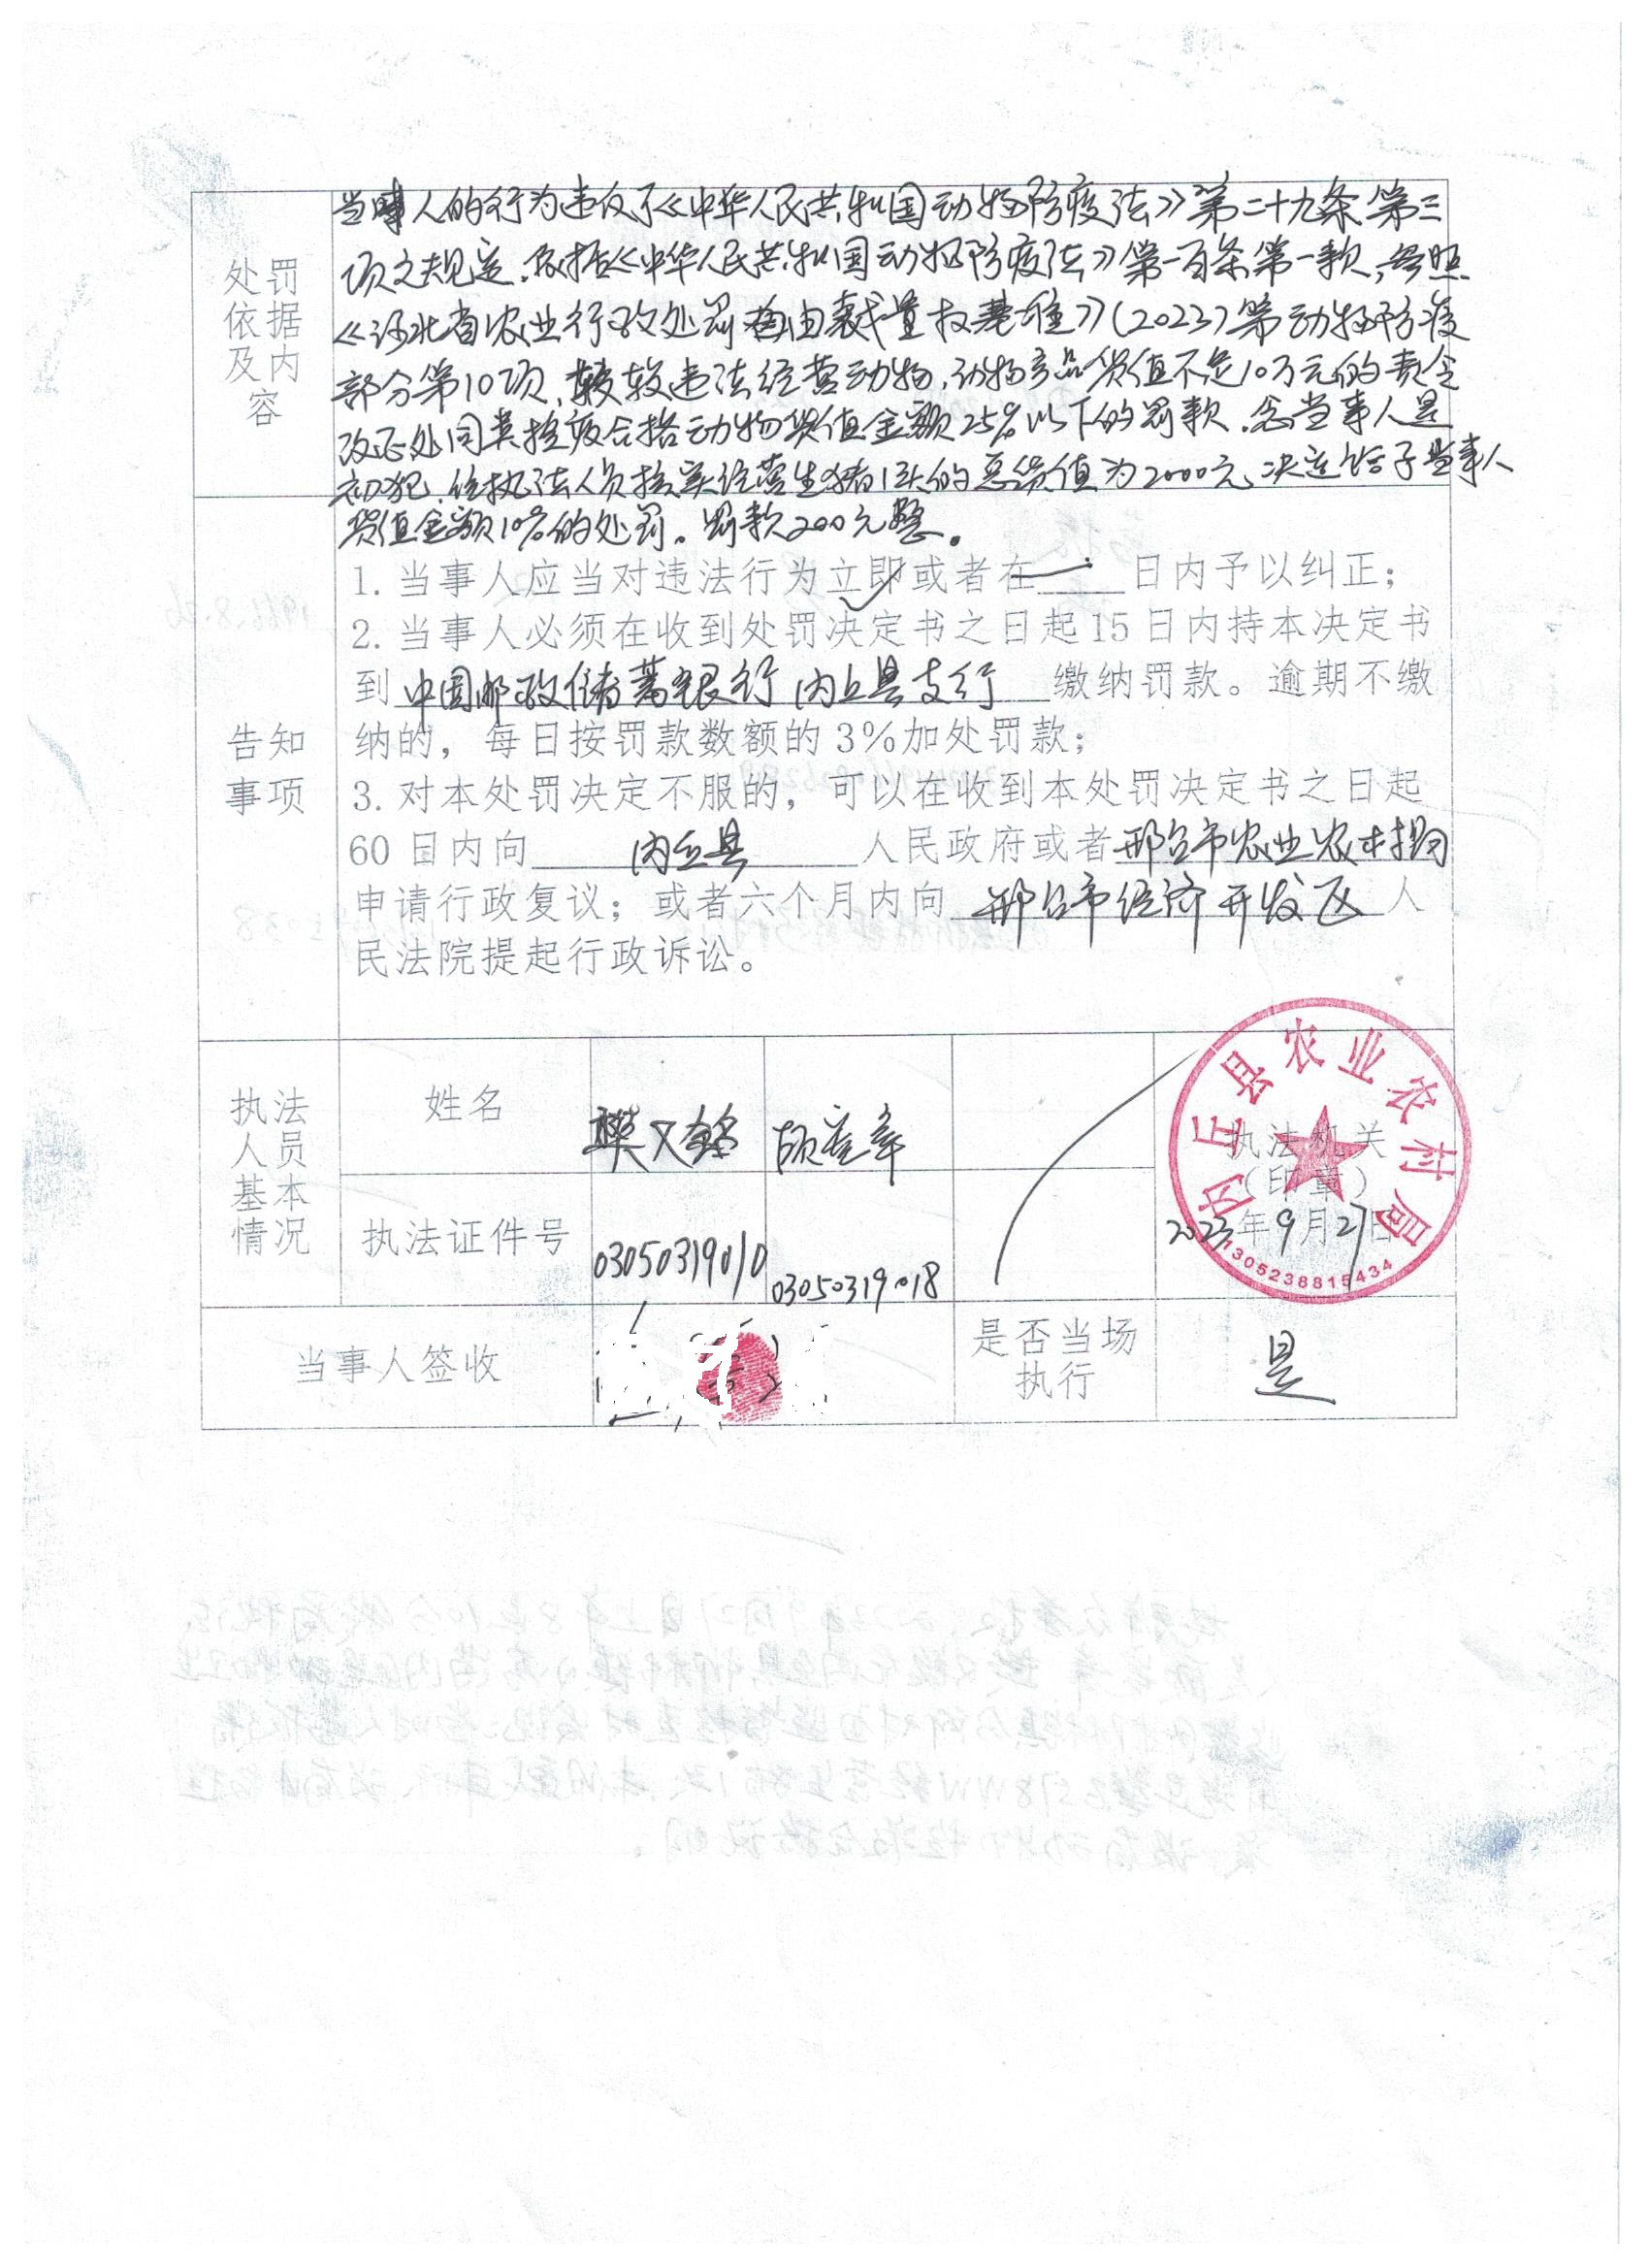 处罚依据及内容
当事人的行为违反了《中华人民共和国动物防疫法》第二十九条第三
项之规定,依据《中华人民共和国动物防疫法》第一百条第一款,参照
《河北省农业行政处罚自由裁量权基准》(2023)第动物防疫
部分第10项,较违法经营动物,动物产品货值不足10万元的责令
改正处同类检疫合格动物货值金额25%以下的罚款,念当事人是
初犯,经执法人员核实经营生猪1头的总货值为2000元,决定给予当事人
货值金额10%的处罚。罚款200元整。
告知事项
1. 当事人应当对违法行为立即或者在 日内予以纠正;
2. 当事人必须在收到处罚决定书之日起15日内持本决定书
到 中国邮政储蓄银行内丘县支行 缴纳罚款。逾期不缴
纳的,每日按罚款数额的3%加处罚款;
3. 对本处罚决定不服的,可以在收到本处罚决定书之日起
60日内向 内丘县 人民政府或者邢台市农业农村局
申请行政复议;或者六个月内向 邢台市经济开发区 人
民法院提起行政诉讼。
执法人员基本情况
姓名
执法证件号
03050319010
03050319018
内丘县农业农村局
执法机关
(印章)
2023年9月27日
1305238815434
当事人签收
是否当场执行
是